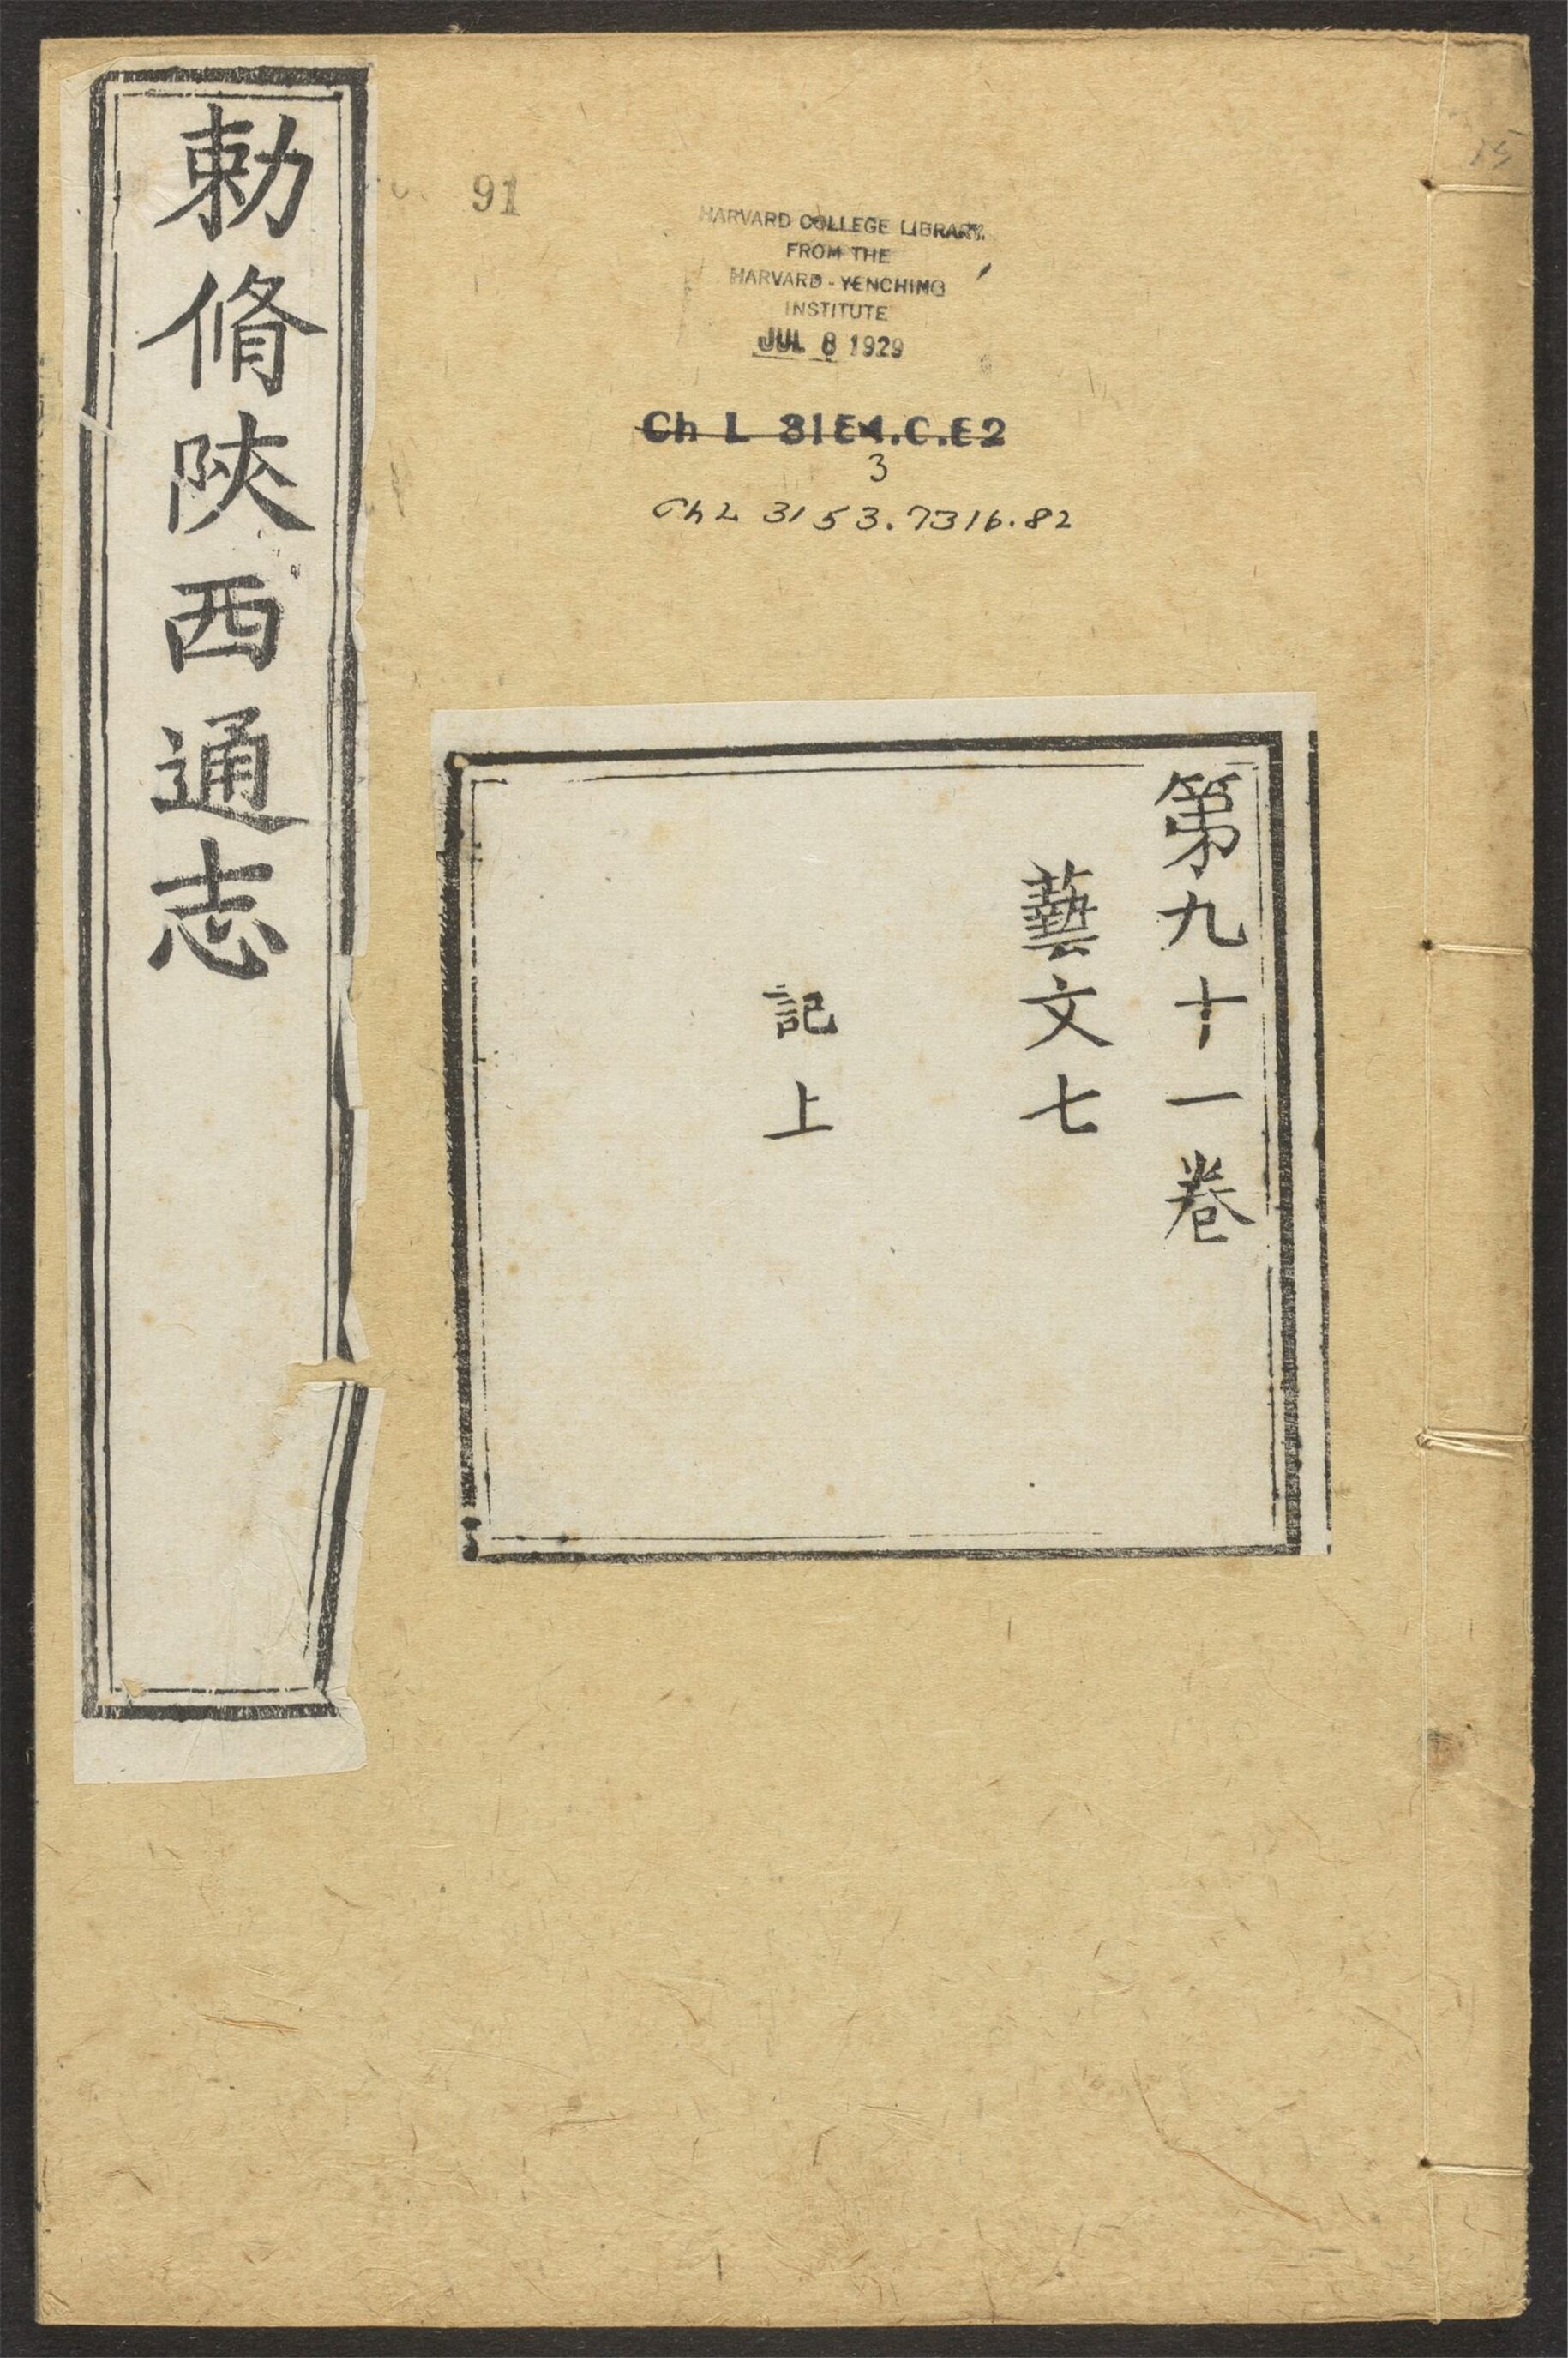 勅脩陜西通志
91
HARVARD COLLEGE LIBRARY
FROM THE
HARVARD-YENCHING
INSTITUTE
JUL 8 1929
Ch L 31E4.C.E2
3
Ch L 3153.7316.82
15
第九十一卷
藝文七
記上